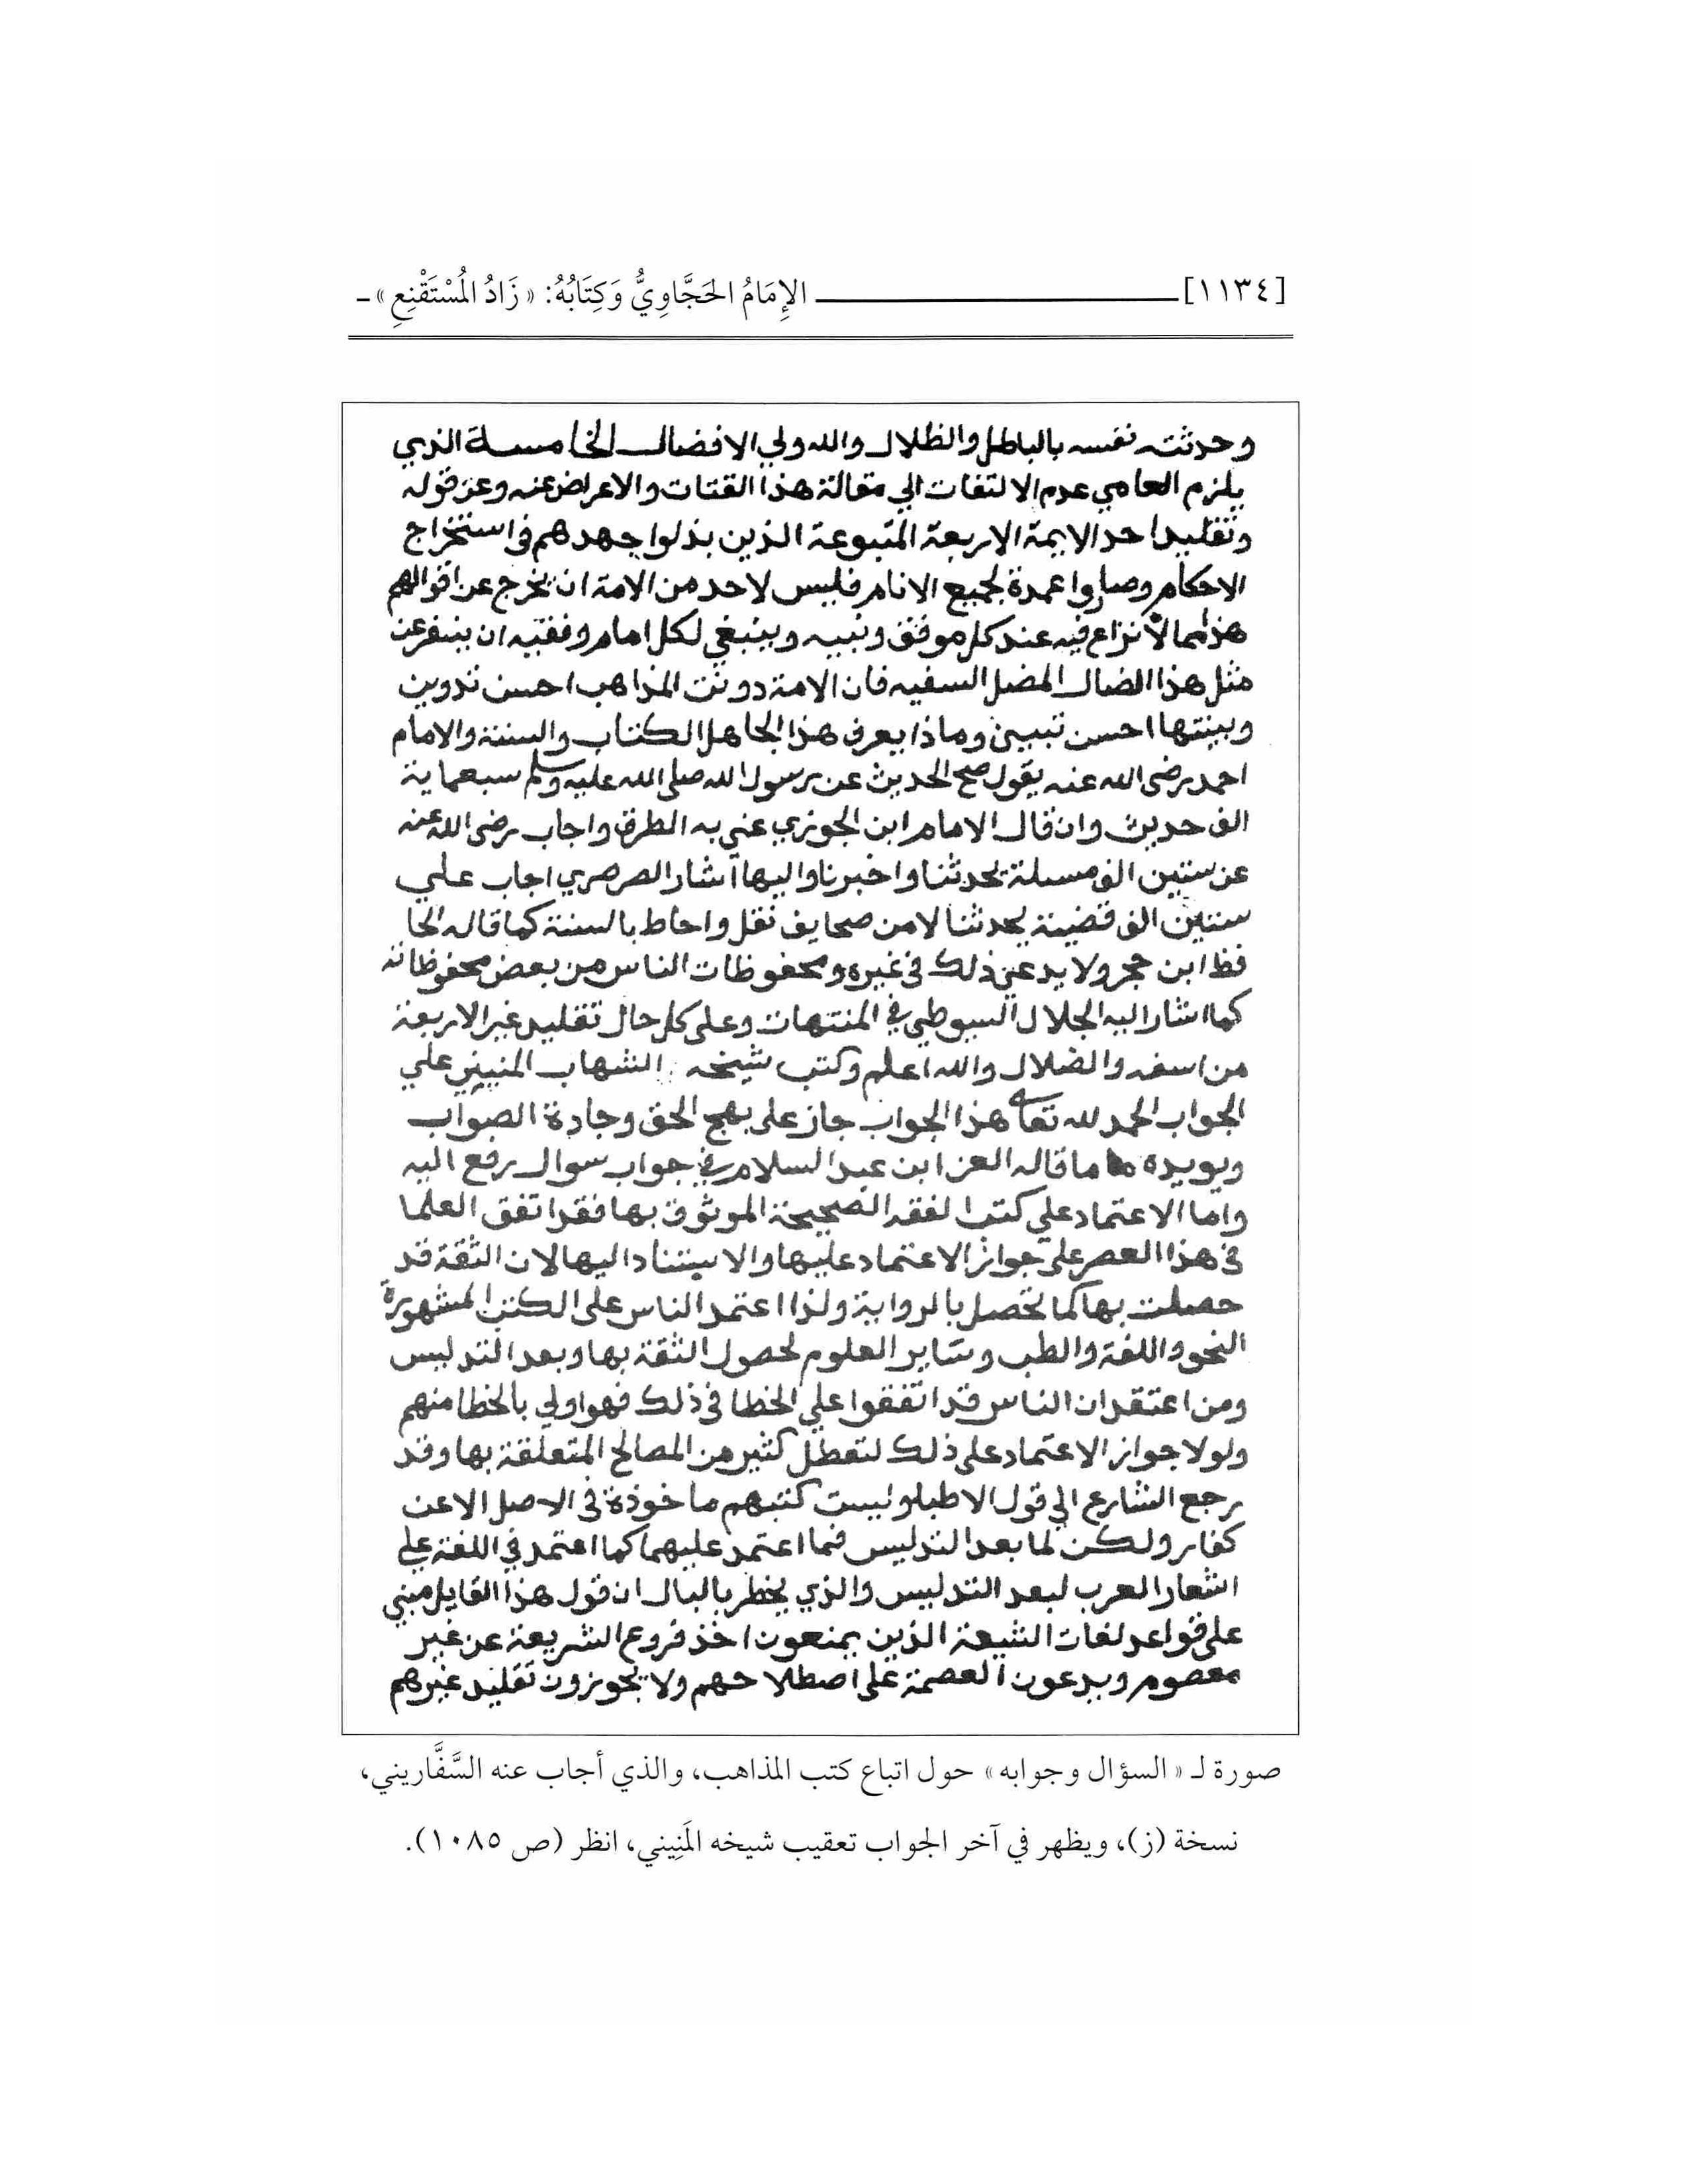 [١١٣٤] الإِمَامُ الحَجَّاوِيُّ وَكِتَابُهُ: «زَادُ المُسْتَقْنِعِ»
وحدثته نفسه بالباطل والظلال والله ولي الافضال الخامسة الذي
يلزم العامي عدم الالتفات الي مقالة هذا القتات والاعراض عنه وعن قوله
وتقليد احد الايمة الاربعة المتبوعة الذين بذلوا جهدهم في استخراج
الاحكام وصاروا عمدة لجميع الانام فليس لاحد من الامة ان يخرج عن اقوالهم
هذا مما لا نزاع فيه عند كل موفق ونبيه وينبغي لكل امام وفقيه ان ينفر عن
مثل هذا الضال المضل السفيه فان الامة دونت المذاهب احسن تدوين
وبينتها احسن تبيين وما ذا يعرف هذا الجاهل الكتاب والسنة والامام
احمد رضى الله عنه يقول صح الحديث عن رسول الله صلى الله عليه وسلم سبعماية
الف حديث وان قال الامام ابن الجوزي عني به الطرق واجاب رضى الله عنه
عن ستين الف مسلة بحدثنا واخبرنا واليها اشار الصرصري اجاب علي
ستين الف قضية بحدثنا لا من صحايف نقل واحاط بالسنة كما قاله الحا
فظ ابن حجر ولا يدعي ذلك في غيره ومحفوظات الناس من بعض محفوظاته
كما اشار اليه الجلال السيوطي في المنتهات وعلى كل حال تقليد غير الاربعة
من اسفه والضلال والله اعلم وكتب شيخه الشهاب المنيني علي
الجواب الحمد لله تعالى هذا الجواب جاز على نهج الحق وجادة الصواب
ويويده ما قاله العز ابن عبد السلام في جواب سوال رفع اليه
واما الاعتماد علي كتب الفقه الصحيحة الموثوق بها فقد اتفق العلما
في هذا العصر على جواز الاعتماد عليها والاستناد اليها لان الثقة قد
حصلت بها كما تحصل بالرواية ولذا اعتمد الناس على الكتب المشهورة
النحو واللغة والطب وساير العلوم لحصول الثقة بها وبعد التدليس
ومن اعتقد ان الناس قد اتفقوا علي الخطا في ذلك فهو اولي بالخطا منهم
ولولا جواز الاعتماد على ذلك لتعطل كثير من المصالح المتعلقة بها وقد
رجع الشارع الي قول الاطبا وليست كتبهم ماخوذة في الاصل الا عن
كفار ولكن لما بعد التدليس فما اعتمد عليها كما اعتمد في اللغة علي
اشعار العرب لبعد التدليس والذي يخطر بالبال ان قول هذا القايل مبني
على قواعد لغات الشيعة الذين يمنعون اخذ فروع الشريعة عن غير
معصوم ويدعون العصمة على اصطلاحهم ولا يجوزون تقليد غيرهم
صورة لـ «السؤال وجوابه» حول اتباع كتب المذاهب، والذي أجاب عنه السَّفَّاريني،
نسخة (ز)، ويظهر في آخر الجواب تعقيب شيخه المَنِيني، انظر (ص ١٠٨٥).